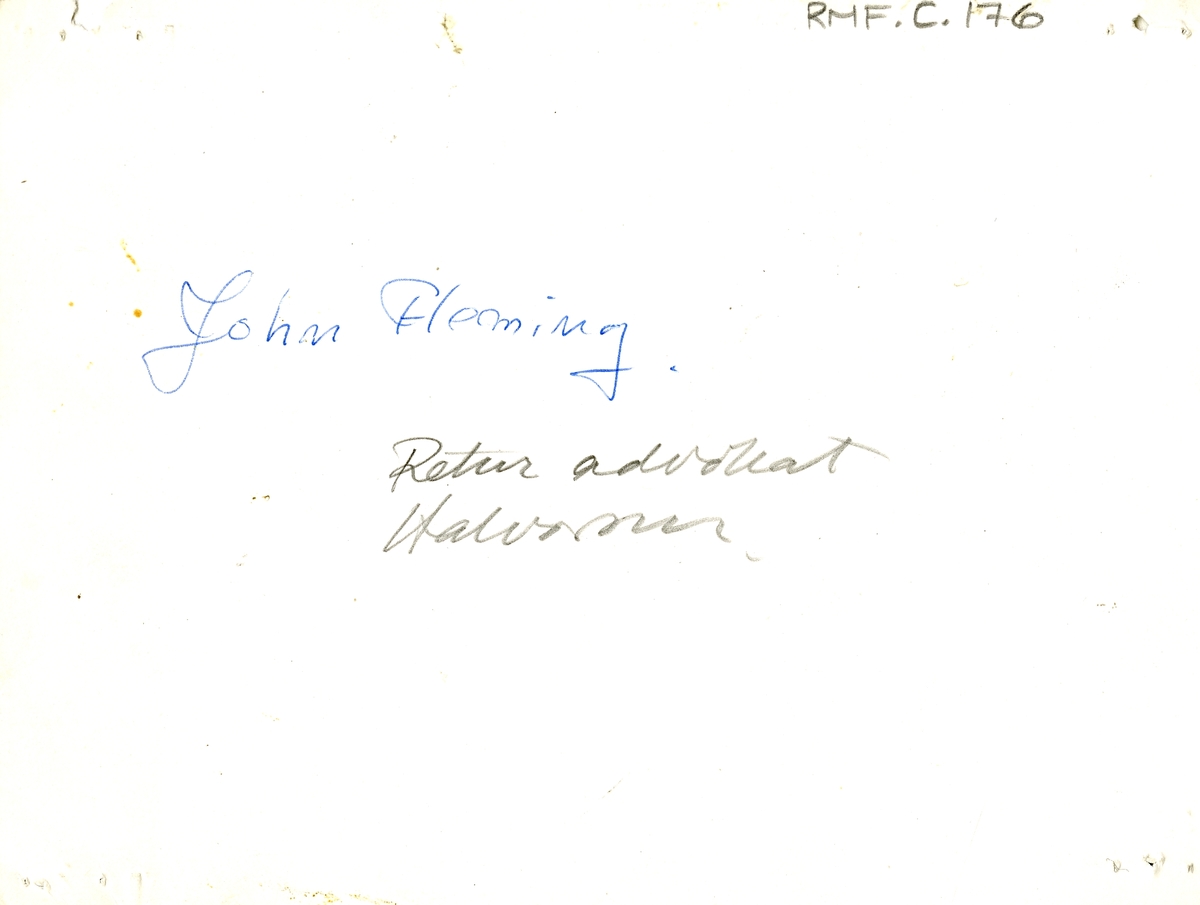 RMF.C.176
John Fleming.
Retur advokat
Halvorsen.